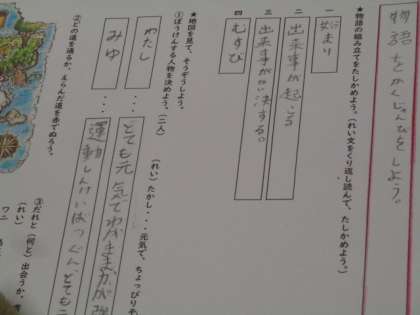 物語をかくじゅんびをしよう。
★物語の組み立てをたしかめよう。(れい文をくり返し読んで、たしかめよう。)
一 始まり
二 出来事が起こる
三 出来事がかい決する。
四 むすび
★地図を見て、そうぞうしよう。
①ぼうけんする人物を決めよう。(二人)
(れい) たかし・・・元気で、ちょっぴり
わたし ・・・ とても元気でわがまま力が強
みゆ ・・・ 運動しんけいばつぐん、とても
②どの道を通るか、えらんだ道を赤でぬろう。
③だれと(何と)出会うか、
(れい)
ワニ